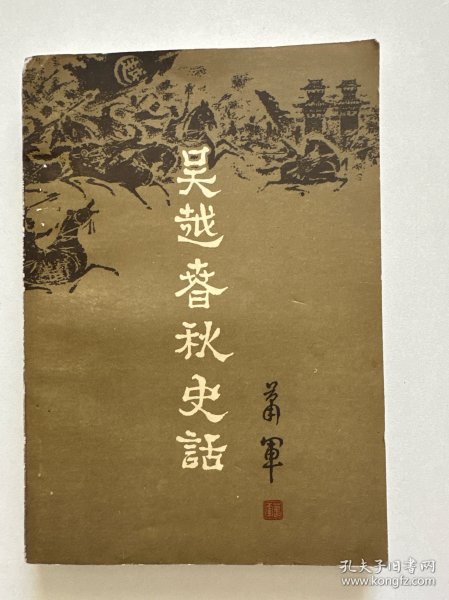 吴越春秋史话
萧军
孔夫子旧书网
www.kongfz.com